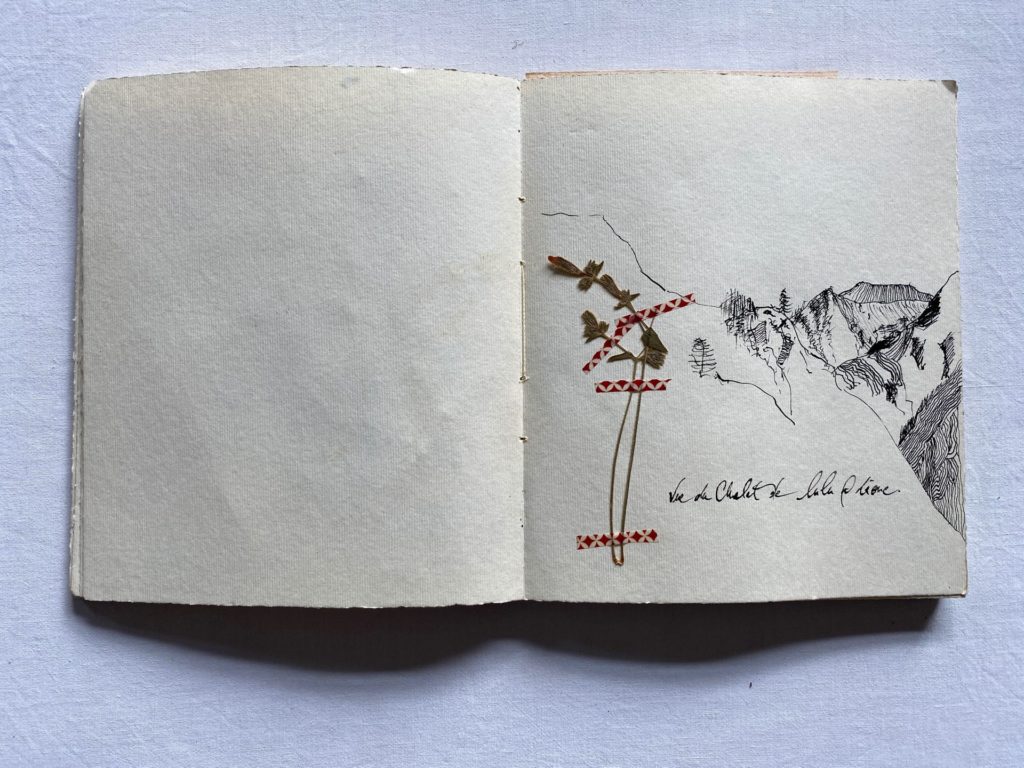 Vue du Chalet de lulu @